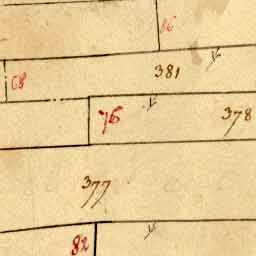 16
381
68
76
378
377
82